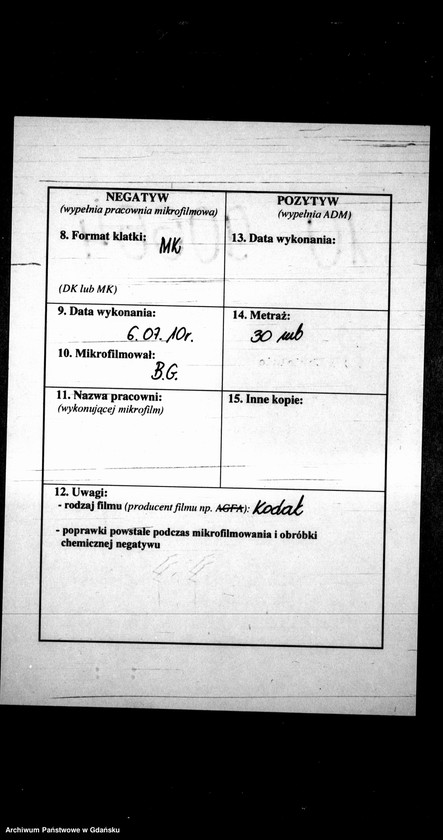 NEGATYW
(wypełnia pracownia mikrofilmowa)
8. Format klatki: MK
(DK lub MK)
9. Data wykonania:
6.07.10r.
10. Mikrofilmował:
B.G.
11. Nazwa pracowni:
(wykonującej mikrofilm)
POZYTYW
(wypełnia ADM)
13. Data wykonania:
14. Metraż:
30 mb
15. Inne kopie:
12. Uwagi:
- rodzaj filmu (producent filmu np. AGFA): Kodak
- poprawki powstałe podczas mikrofilmowania i obróbki
chemicznej negatywu
Archiwum Państwowe w Gdańsku